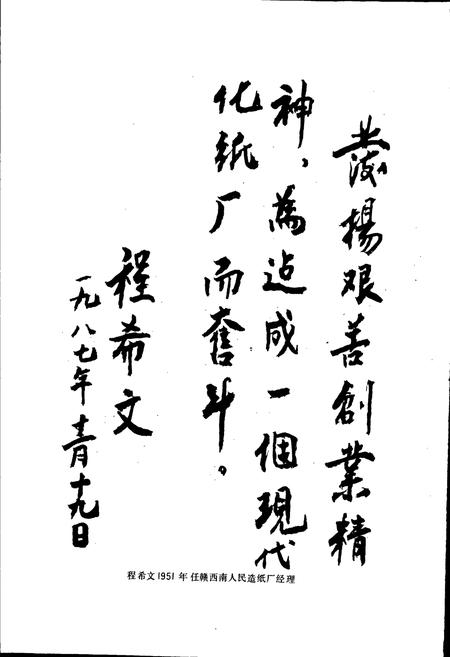 發揚艰苦創業精
神、為迠成一個現代
化纸厂而奮斗。
程希文
一九八七年月十九日
程希文1951年任赣西南人民造纸厂经理